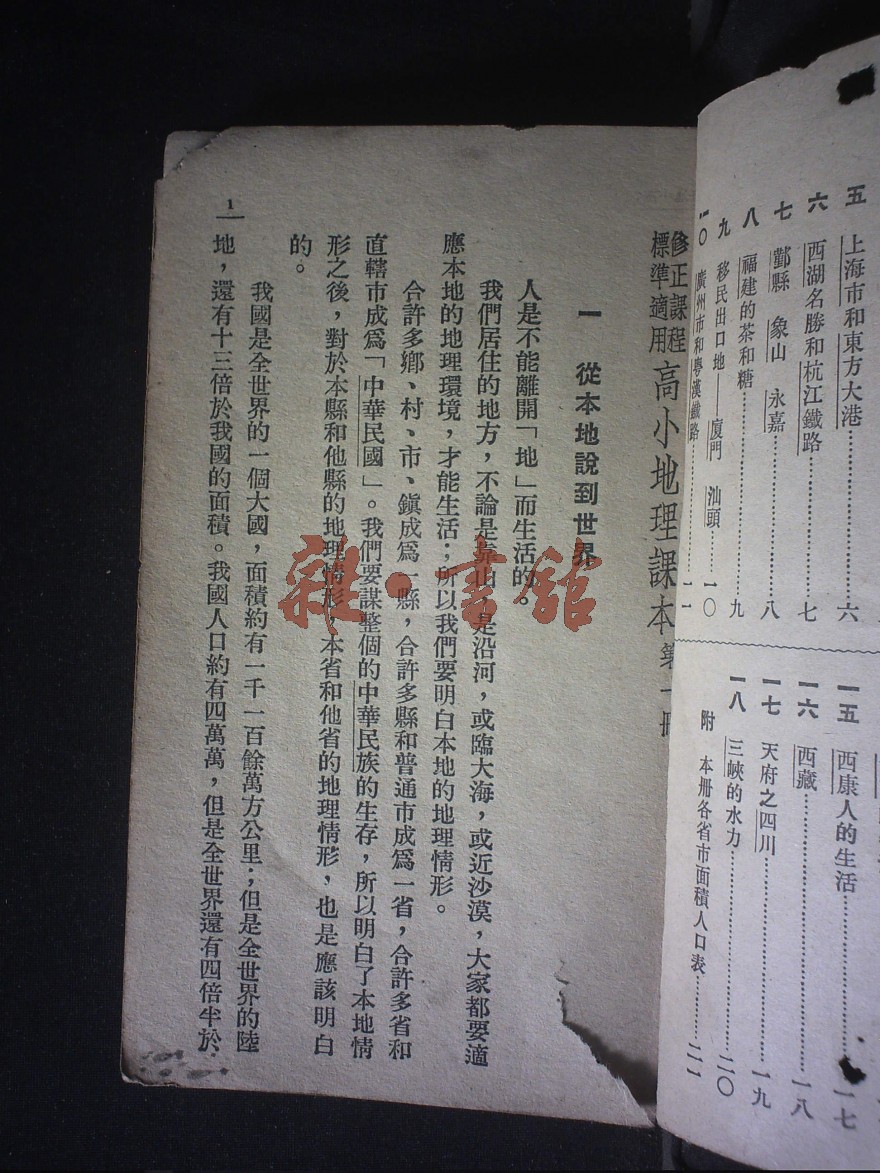 五 上海市和東方大港……六
六 西湖名勝和杭江鐵路……七
七 鄞縣 象山 永嘉……八
八 福建的茶和糖……九
九 移民出口地——廈門 汕頭……一〇
一〇 廣州市和粵漢鐵路……一一
一五 西康人的生活……一七
一六 西藏……一八
一七 天府之四川……一九
一八 三峽的水力……二〇
附 本册各省市面積人口表……二一
修正課程
標準適用
高小地理課本 第一冊
一 從本地說到世界
人是不能離開「地」而生活的。
我們居住的地方,不論是靠山,是沿河,或臨大海,或近沙漠,大家都要適
應本地的地理環境,才能生活;所以我們要明白本地的地理情形。
合許多鄉、村、市、鎮成爲一縣,合許多縣和普通市成爲一省,合許多省和
直轄市成爲「中華民國」。我們要謀整個的中華民族的生存,所以明白了本地情
形之後,對於本縣和他縣的地理情形,本省和他省的地理情形,也是應該明白
的。
我國是全世界的一個大國,面積約有一千一百餘萬方公里;但是全世界的陸
地,還有十三倍於我國的面積。我國人口約有四萬萬,但是全世界還有四倍半於
1
雜·書館